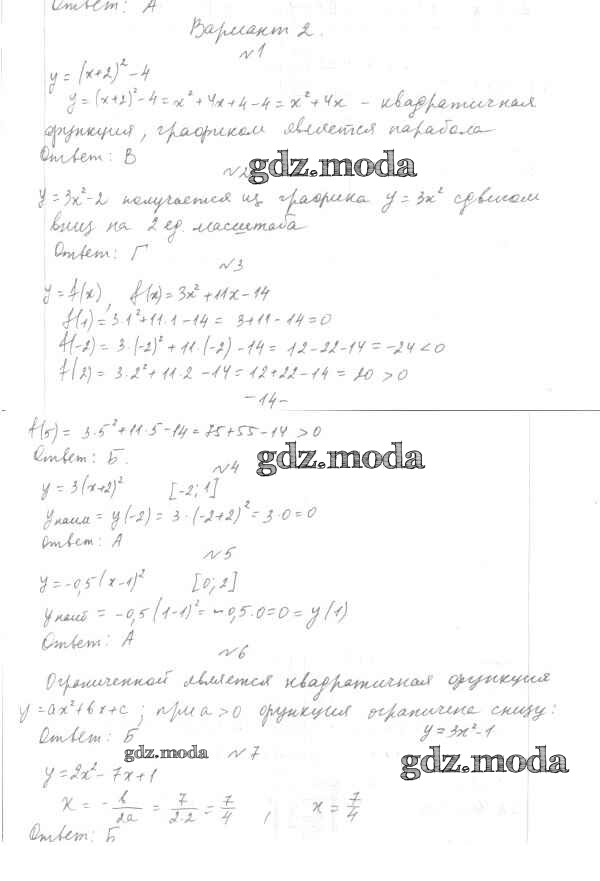 Ответ: А
Вариант 2.
№1
y = (x+2)² - 4
y = (x+2)² - 4 = x² + 4x + 4 - 4 = x² + 4x - квадратичная
функция, графиком является парабола
Ответ: В
№2
gdz.moda
y = 3x² - 2 получается из графика y = 3x² сдвигом
вниз на 2 ед. масштаба
Ответ: Г
№3
y = f(x), f(x) = 3x² + 11x - 14
f(1) = 3·1² + 11·1 - 14 = 3 + 11 - 14 = 0
f(-2) = 3·(-2)² + 11·(-2) - 14 = 12 - 22 - 14 = -24 < 0
f(2) = 3·2² + 11·2 - 14 = 12 + 22 - 14 = 20 > 0
-14-
f(5) = 3·5² + 11·5 - 14 = 75 + 55 - 14 > 0
Ответ: Б.
№4
gdz.moda
y = 3(x+2)² [-2; 1]
yнаим = y(-2) = 3·(-2+2)² = 3·0 = 0
Ответ: А
№5
y = -0,5(x-1)² [0; 2]
yнаиб = -0,5(1-1)² = -0,5·0 = 0 = y(1)
Ответ: А
№6
Ограниченной является квадратичная функция
y = ax² + bx + c; при a > 0 функция ограничена снизу:
Ответ: Б y = 3x² - 1
gdz.moda
№7
gdz.moda
y = 2x² - 7x + 1
x = -b/2a = 7/2·2 = 7/4, x = 7/4
Ответ: Б